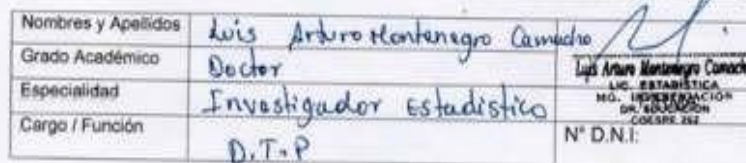 Nombres y Apellidos Luis Arturo Montenegro Camacho
Grado Académico Doctor
Luis Arturo Montenegro Camacho
LIC. ESTADÍSTICA
MG. INVESTIGACIÓN
DR. EDUCACIÓN
COESPE 262
Especialidad Investigador Estadístico
Cargo / Función D.T.P
N° D.N.I: